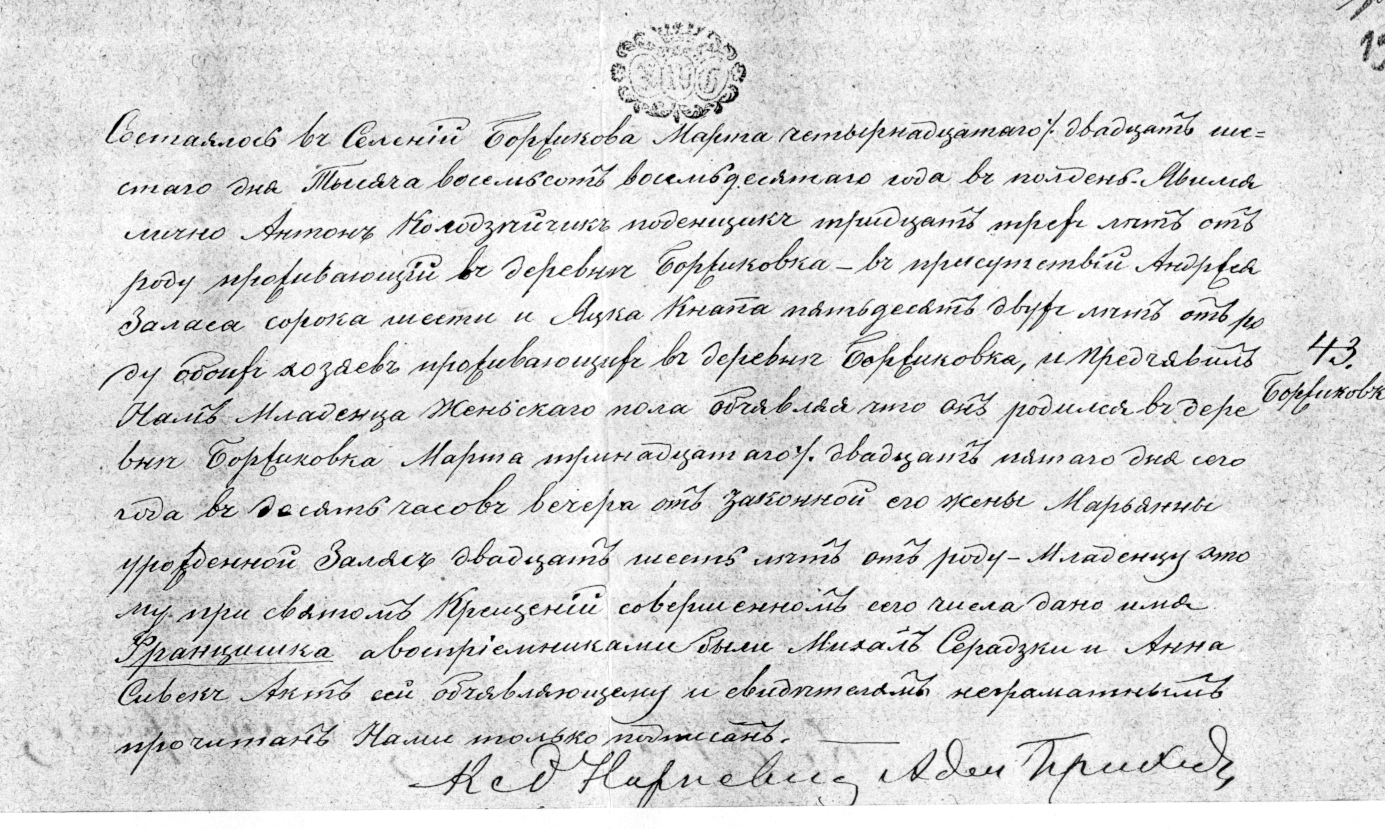 Состоялось въ Селеній Боржикова Марта четырнадцатаго/. двадцать ше=
стаго дня Тысяча восемьсотъ восемьдесятаго года въ полдень. Явился
лично Антонъ Колодзѣйчикъ поденщикъ тридцать трехъ лѣтъ отъ
роду проживающій въ деревнѣ Боржиковка – въ присутствіи Андрея
Заласа сорока шести и Яцка Кнапа пятьдесятъ двухъ лѣтъ отъ ро
ду обоихъ хозяевъ проживающихъ въ деревнѣ Боржиковка, и предъявилъ
43.
Боржиковк
Намъ Младенца Женьскаго пола объявляя что онъ родился въ дере
внѣ Боржиковка Марта тринадцатаго/. двадцать пятаго дня сего
года въ десять часовъ вечера отъ законной его жены Марьянны
урожденной Залясъ двадцать шесть лѣтъ отъ роду – Младенцу это
му при святомъ Крещеній совершенномъ сего числа дано имя
Францишка а воспріемниками были Михалъ Серадзки и Анна
Сивекъ Актъ сей объявляющему и свидѣтелямъ неграматнымъ
прочитанъ Нами только подписанъ.